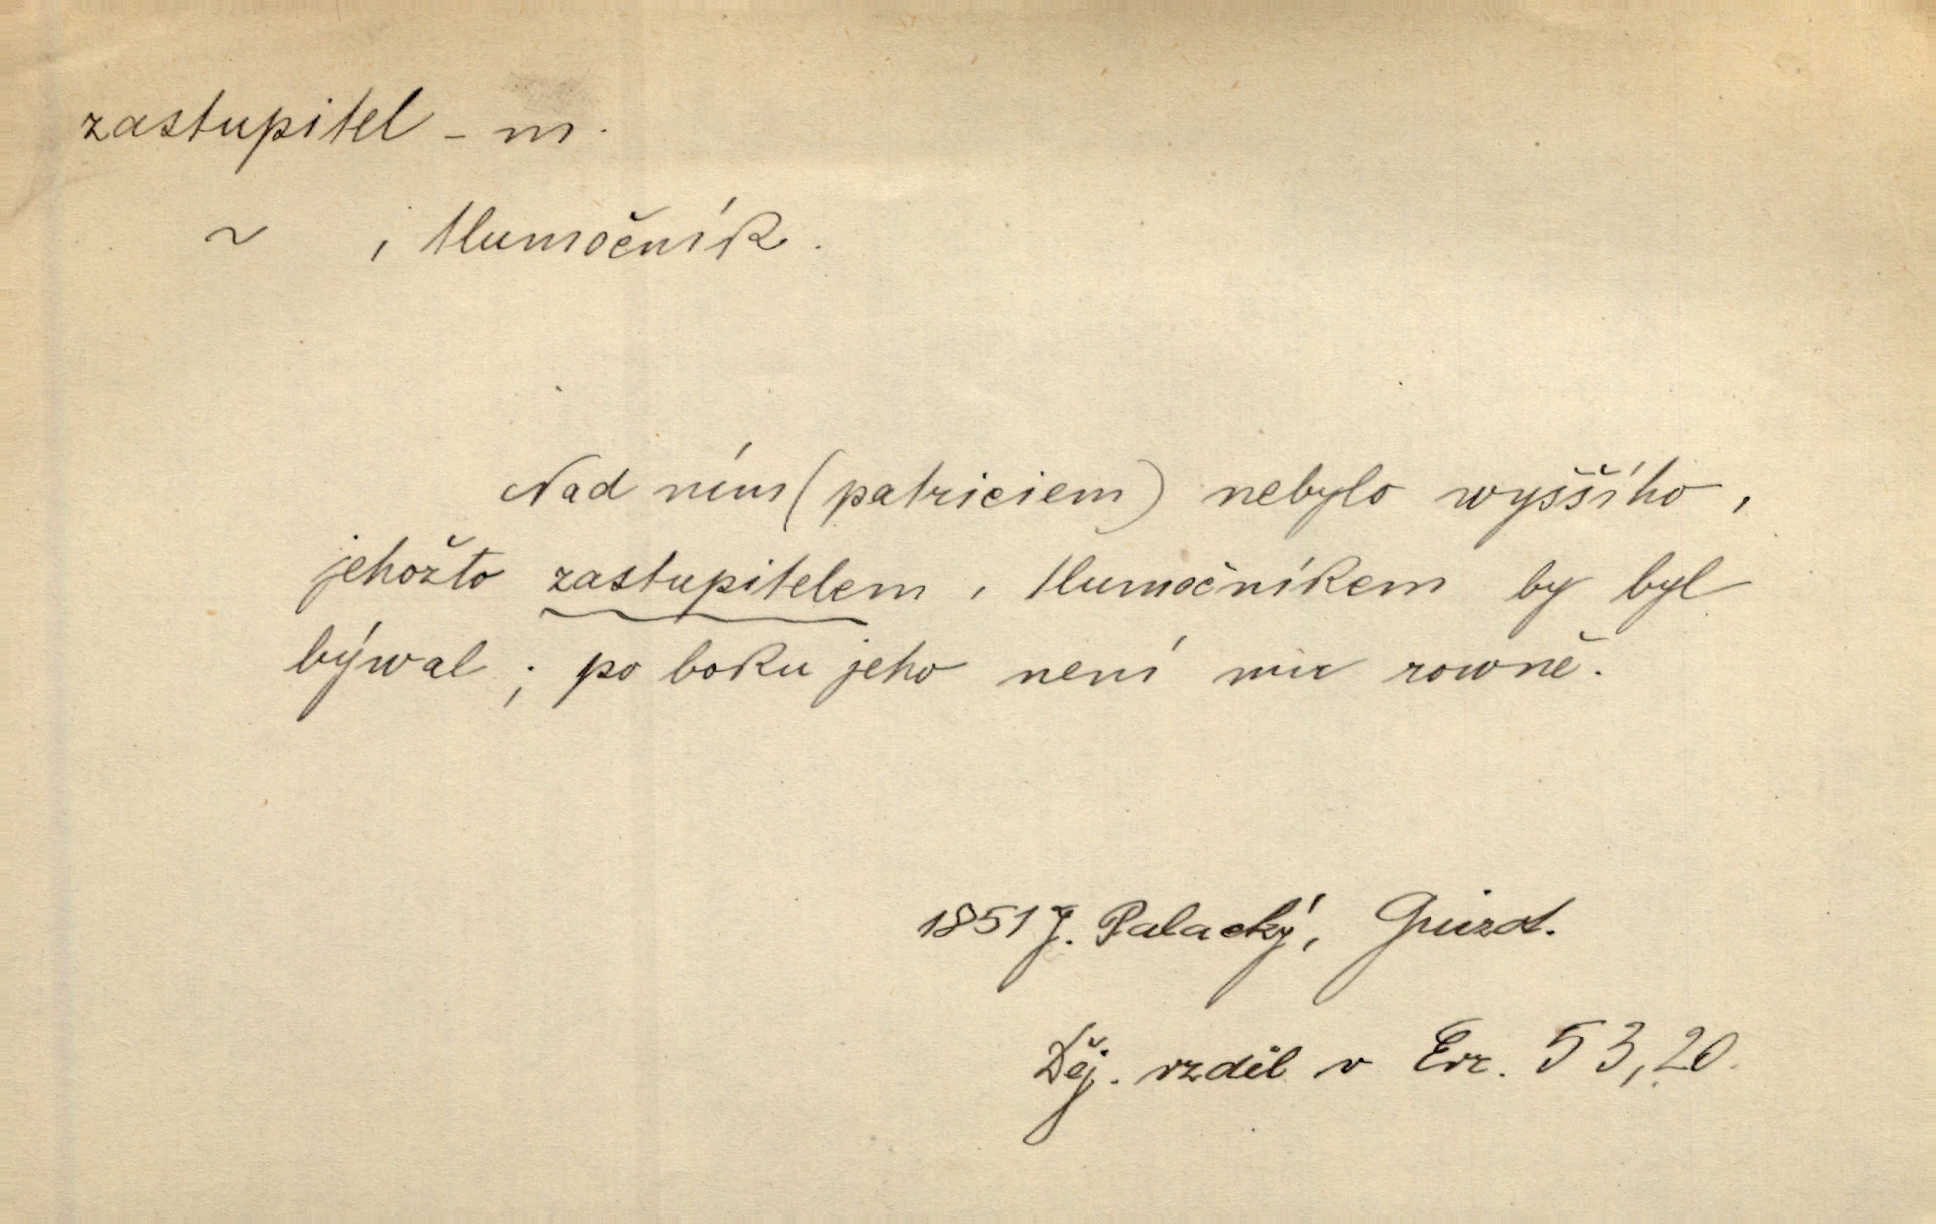 zastupitel - m.
~ , tlumočník.
Nad ním (patriciem) nebylo wyššího,
jehožto zastupitelem, tlumočníkem by byl
býwal; po boku jeho není mu rowně.
1851 J. Palacký, Guizot.
Děj. vzděl v Evr. 53,20.